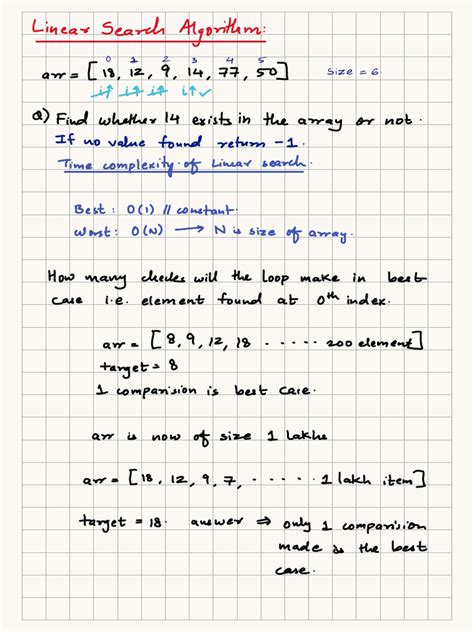 Linear Search Algorithm:
0 1 2 3 4 5
arr = [18, 12, 9, 14, 77, 50] size = 6
i↑ i↑ i↑ i↑ ✓
Q) Find whether 14 exists in the array or not.
If no value found return -1.
Time complexity of Linear search.
Best : O(1) // constant.
Worst: O(N) → N is size of array.
How many checks will the loop make in best
case i.e. element found at 0th index.
arr = [8, 9, 12, 18 ..... 200 element]
target = 8
1 comparision is best case.
arr is now of size 1 lakhs
arr = [18, 12, 9, 7, ..... 1 lakh item]
target = 18. answer ⇒ only 1 comparision
made is the best
case.